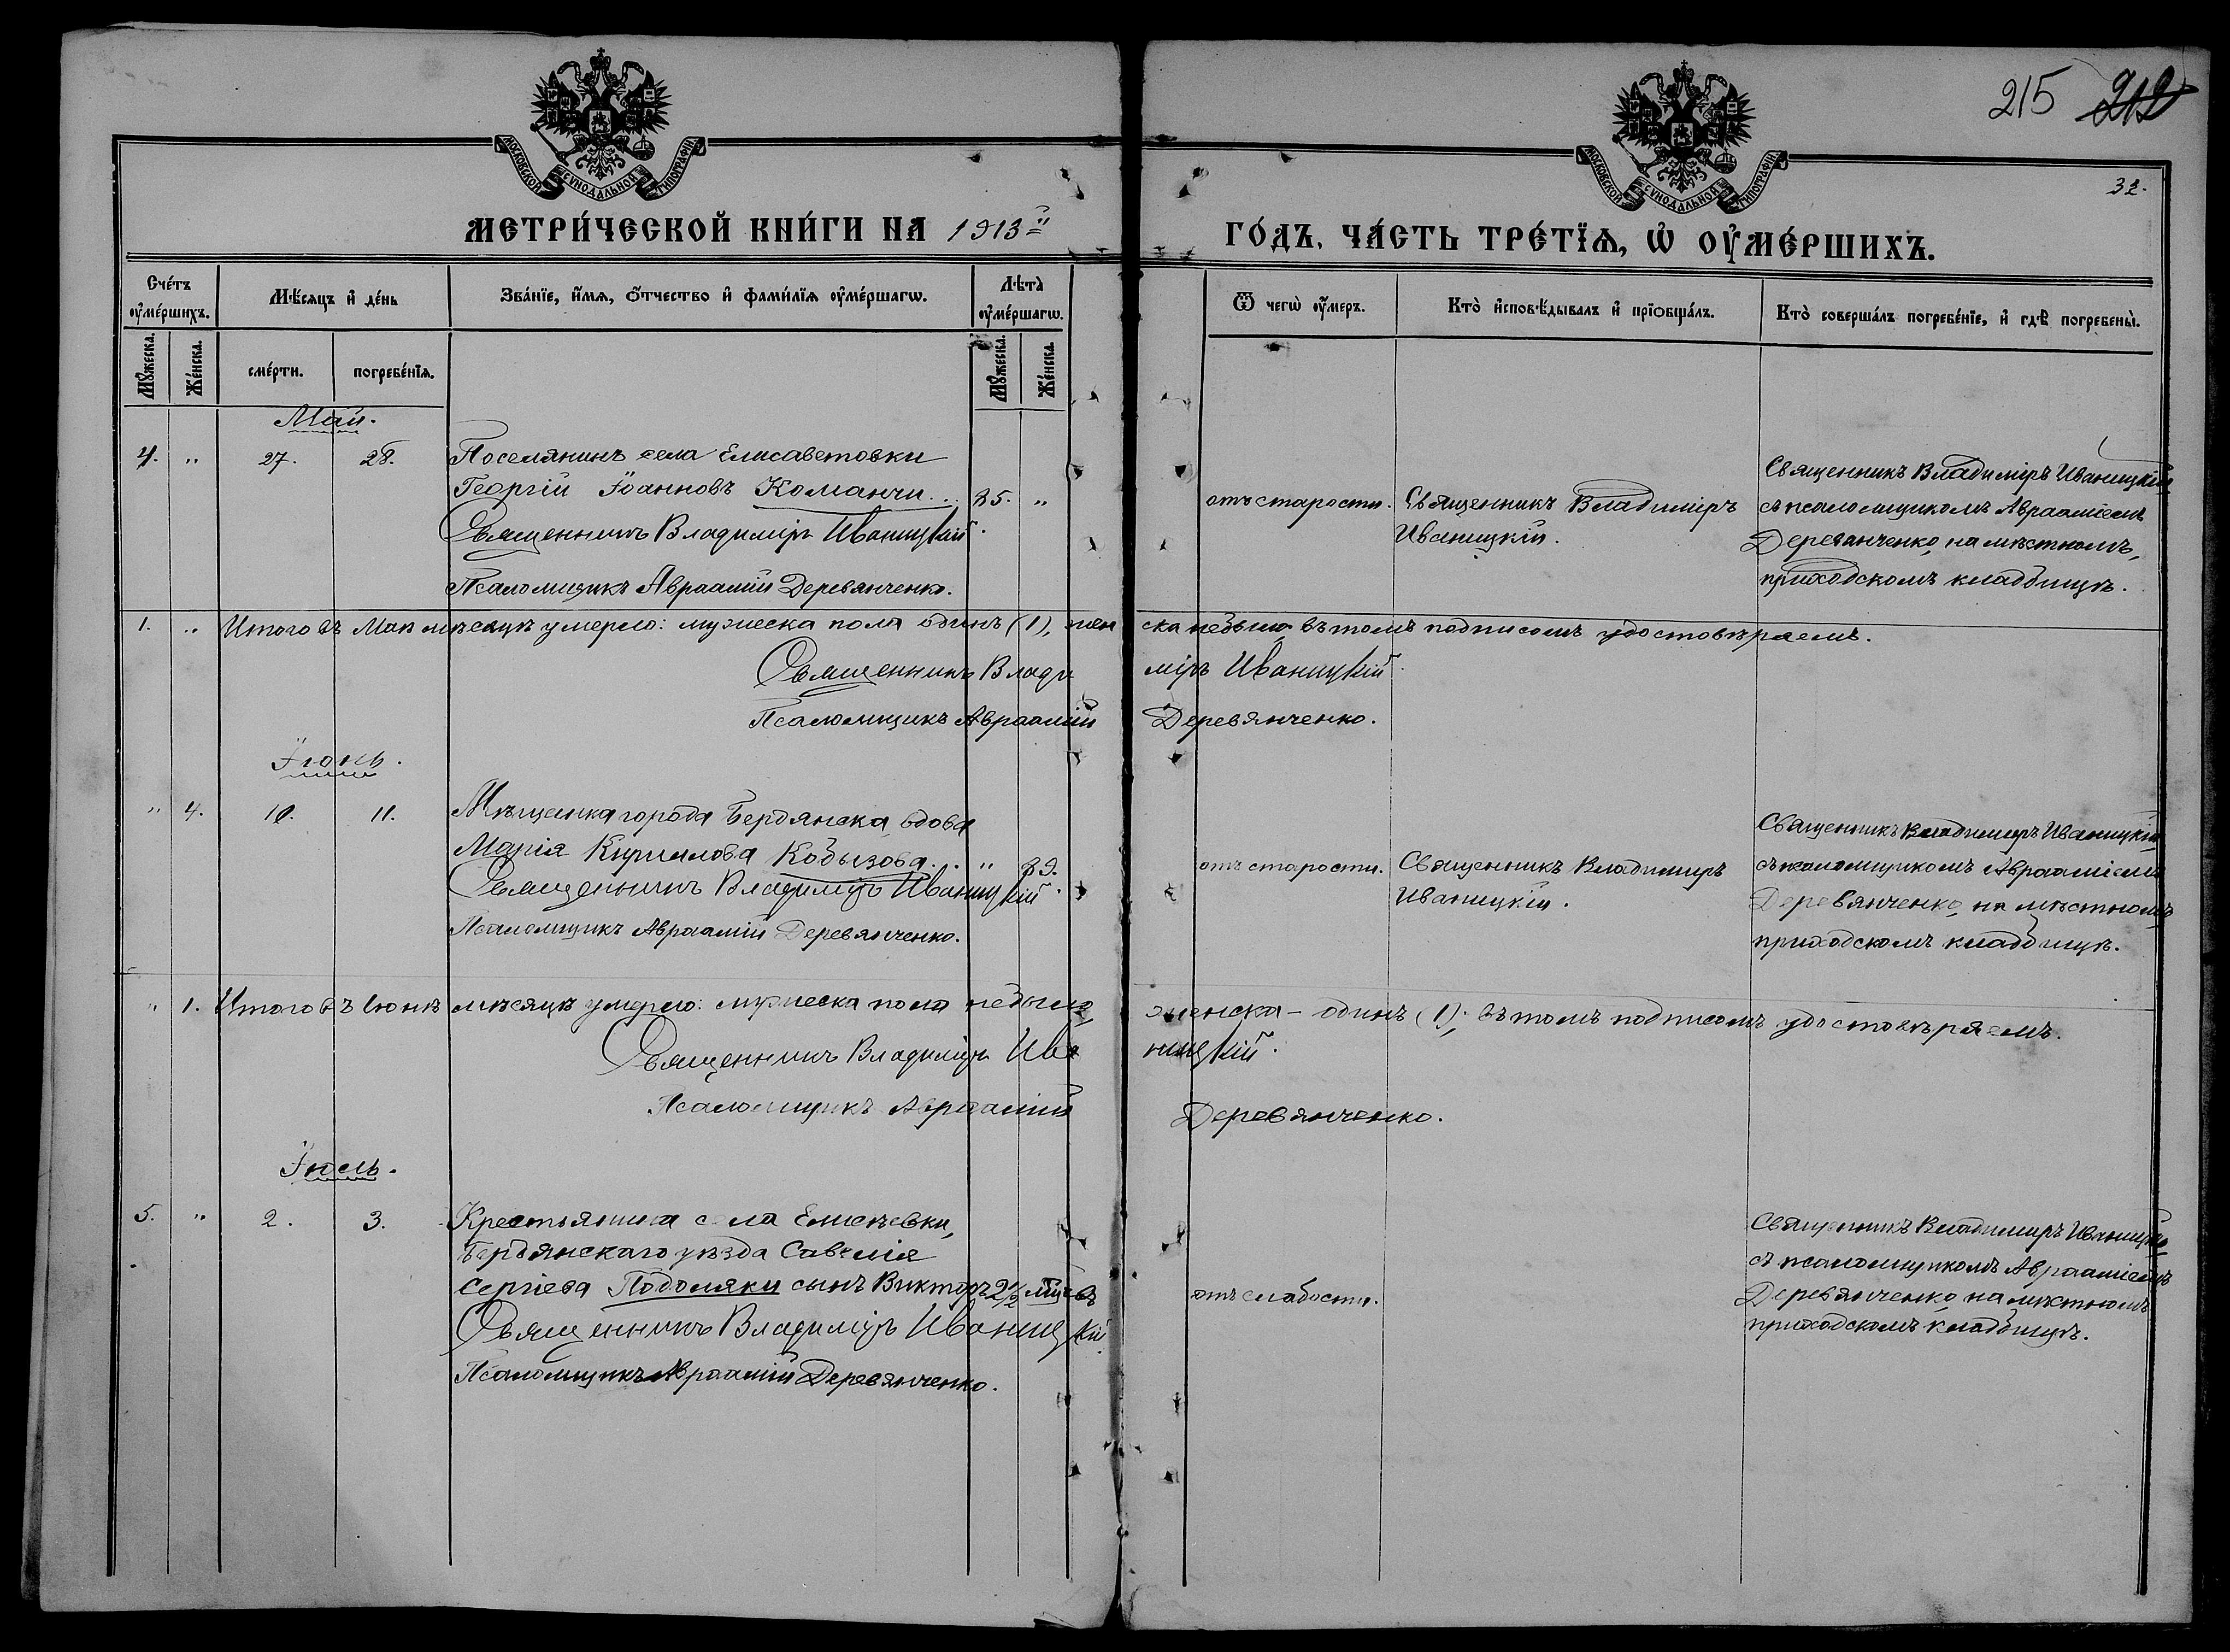 215 212
32.
МОСКОВСКОЙ СѴНОДАЛЬНОЙ ТИПОГРАФІИ
МОСКОВСКОЙ СѴНОДАЛЬНОЙ ТИПОГРАФІИ
МЕТРИ́ЧЕСКОЙ КНИ́ГИ НА 1913й ГО́ДЪ, ЧА́СТЬ ТРЕ́ТЇѦ, Ѡ҆ ОУ҆МЕ́РШИХЪ.
Сче́тъ оу҆ме́ршихъ.
Мѣ́сяцъ и҆ де́нь
Зва́нїе, и҆́мѧ, ѻ҆́тчество и҆ фами́лїѧ оу҆ме́ршагѡ.
Лѣта̀ оу҆ме́ршагѡ.
Ѿ чегѡ̀ оу҆́меръ.
Кто̀ и҆сповѣ́дывалъ и҆ прїѻбща́лъ.
Кто̀ соверша́лъ погребе́нїе, и҆ гдѣ̀ погребены̀.
Мꙋ́жеска.
Же́нска.
сме́рти.
погребе́нїѧ.
Мꙋ́жеска.
Же́нска.
Май.
4. " 27. 28. Поселянинъ села Елисаветовки
Георгій Іоанновъ Команчи... 85. "
Священникъ Владиміръ Иваницкій.
Псаломщикъ Авраамій Деревянченко.
отъ старости.
Священникъ Владиміръ
Иваницкій.
Священникъ Владиміръ Иваницкій
съ псаломщикомъ Авраамiемъ
Деревянченко, на мѣстномъ,
приходскомъ кладбищѣ.
1. " Итого въ Маѣ мѣсяцѣ умерло: мужеска пола одинъ (1), женска не было, въ томъ подписомъ удостовѣряемъ.
Священникъ Владиміръ Иваницкій.
Псаломщикъ Авраамій Деревянченко.
Іюнь.
" 4. 10. 11. Мѣщанка города Бердянска, вдова
Марія Кириллова Кобызова.. " 89.
Священникъ Владиміръ Иваницкій.
Псаломщикъ Авраамій Деревянченко.
отъ старости.
Священникъ Владимиръ
Иваницкій.
Священникъ Владимиръ Иваницкій
съ псаломщикомъ Авраамiемъ
Деревянченко, на мѣстномъ
приходскомъ кладбищѣ.
" 1. Итого въ Іюнѣ мѣсяцѣ умерло: мужеска пола не было, женска - одинъ (1); въ томъ подписомъ удостовѣряемъ.
Священникъ Владиміръ Иваницкій.
Псаломщикъ Авраамій Деревянченко.
Іюль.
5. " 2. 3. Крестьянина села Елисѣевки,
Бердянскаго уѣзда Савелія
Сергіева Подоляки сынъ Викторъ 2½ мѣсв
Священникъ Владиміръ Иваницкій.
Псаломщикъ Авраамій Деревянченко.
отъ слабости.
Священникъ Владимиръ Иваницкій
съ псаломщикомъ Авраамiемъ
Деревянченко, на мѣстномъ
приходскомъ кладбищѣ.